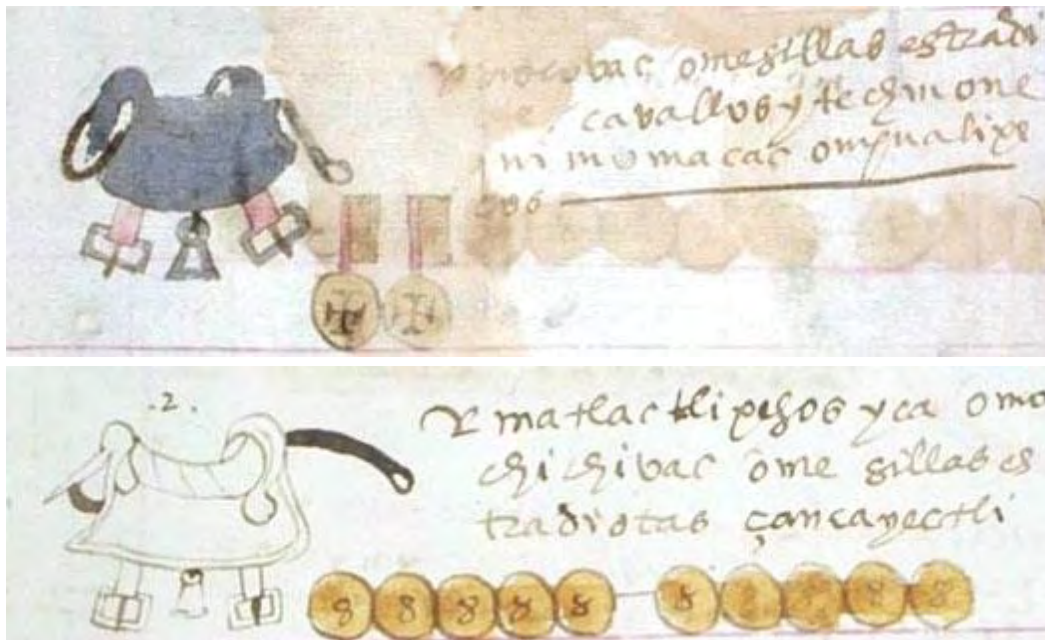 omesillas estradi
cavallos ytechmone
nimomacac ompualipe
sos
.2.
Y matlactlipesos yca omo
chichivac ome sillas es
tradiotas çancayectli
8 8 8 8 8 8 8 8 8 8